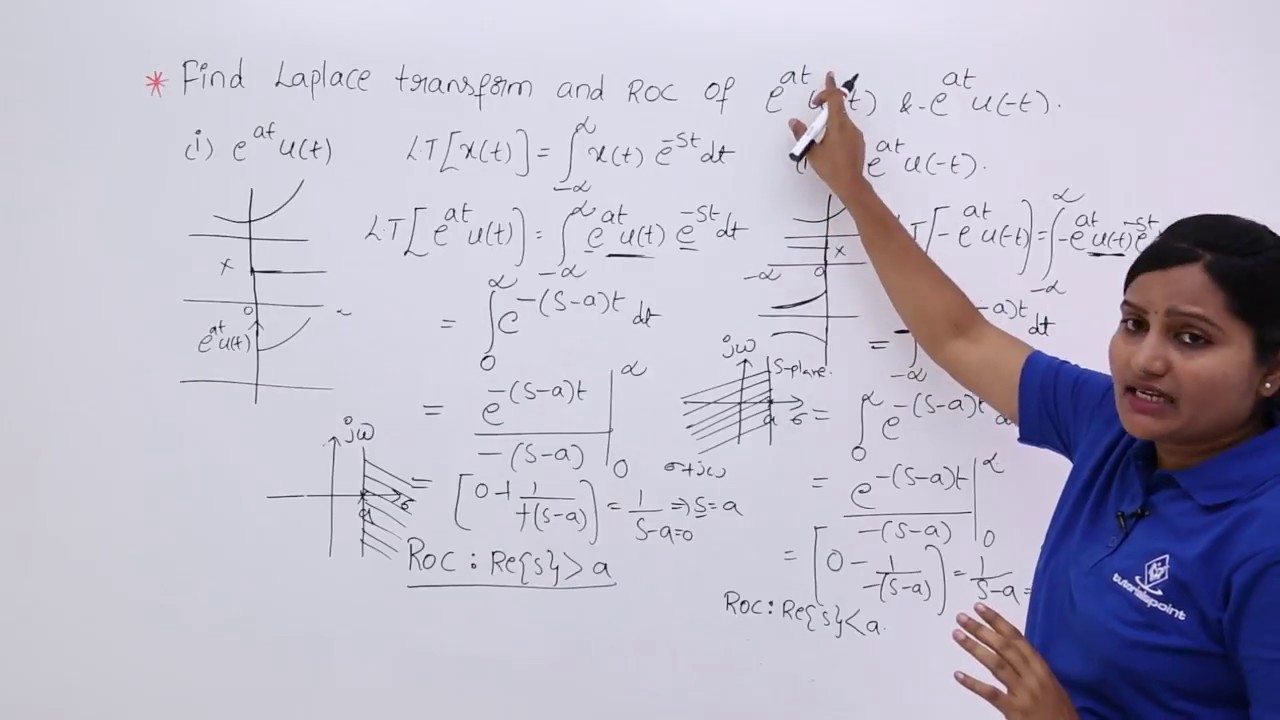 * Find Laplace transform and ROC of e^{at} u(t) & -e^{at} u(-t).
(i) e^{at} u(t)
LT[x(t)] = ∫_{-∞}^{∞} x(t) e^{-st} dt
LT[e^{at} u(t)] = ∫_{-∞}^{∞} e^{at} u(t) e^{-st} dt
x
0
e^{at} u(t)
= ∫_{0}^{∞} e^{-(s-a)t} dt
= e^{-(s-a)t} / -(s-a) |_{0}^{∞}
= [0 + 1/+(s-a)] = 1/s-a=0 ⇒ s=a
ROC : Re{s} > a
jω
a
σ
e^{at} u(-t).
LT[-e^{at} u(-t)] = ∫_{-∞}^{∞} -e^{at} u(-t) e^{-st}
x
0
-∞
= ∫_{-∞} -a)t dt
jω
S-plane.
a
σ
σ+jω
= ∫_{0}^{∞} e^{-(s-a)t}
= e^{-(s-a)t} / -(s-a) |_{0}^{∞}
= [0 - 1/-(s-a)] = 1/s-a =
ROC : Re{s} < a.
tutorialspoint